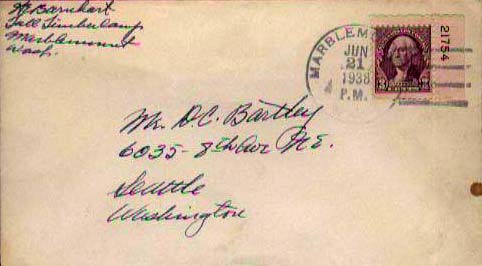 Barnhart
Tall Timber Camp
Marblemount
Wash.
MARBLEMO
JUN
21
1938
P.M.
21754
3
Mr. D.C. Bartley
6035 - 8th Ave N.E.
Seattle
Washington